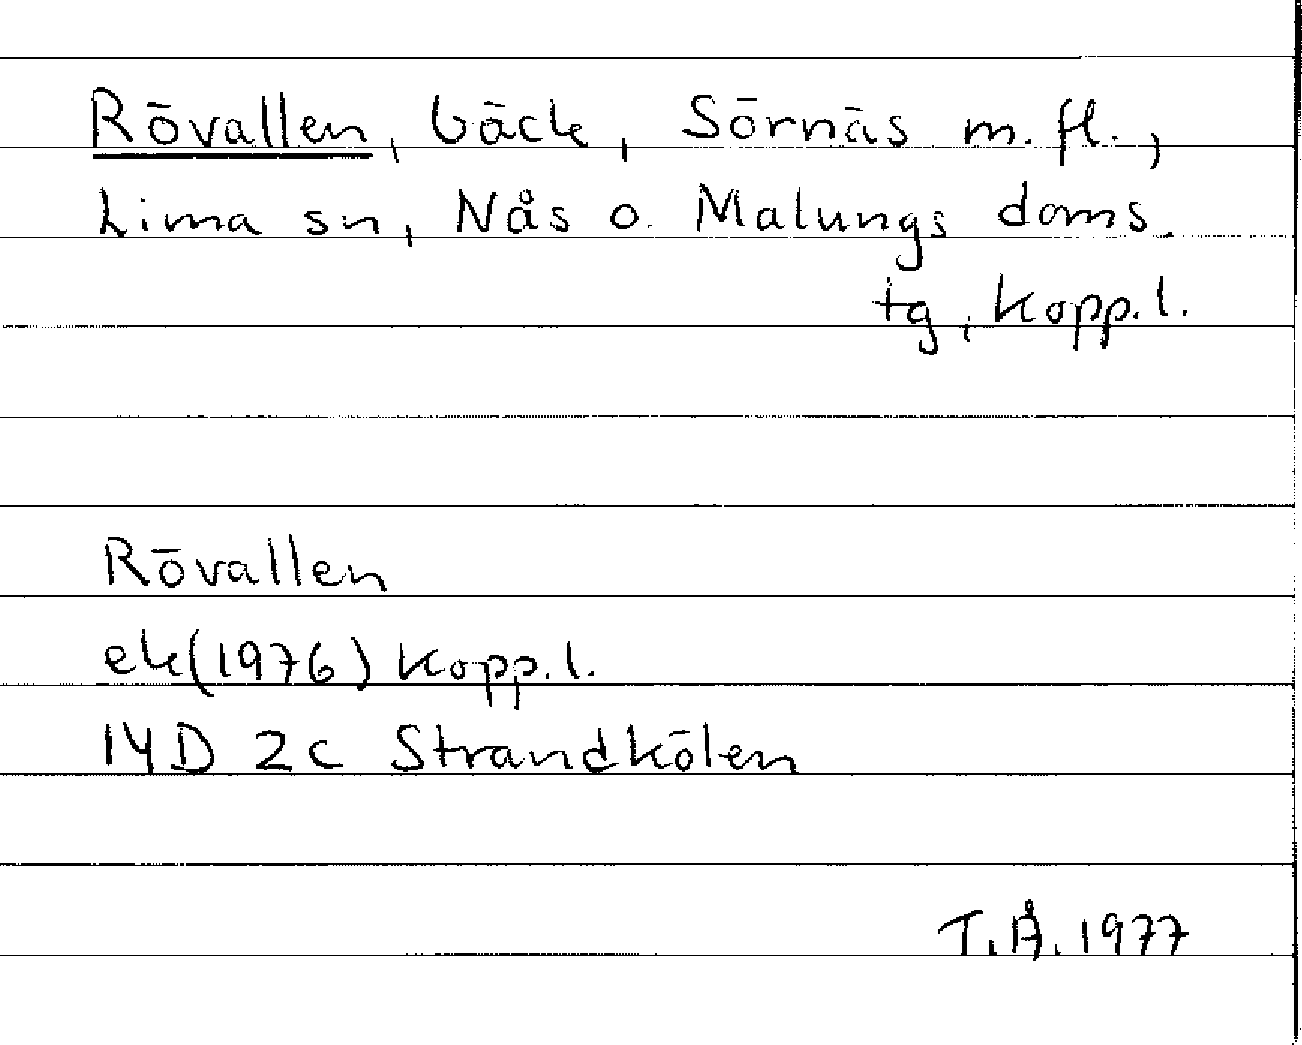 Rövallen, bäck, Sörnäs m.fl.,
Lima sn, Nås o. Malungs doms.
tg, Kopp.l.
Rövallen
ek(1976) Kopp.l.
14D 2c Strandkölen
T.Å. 1977